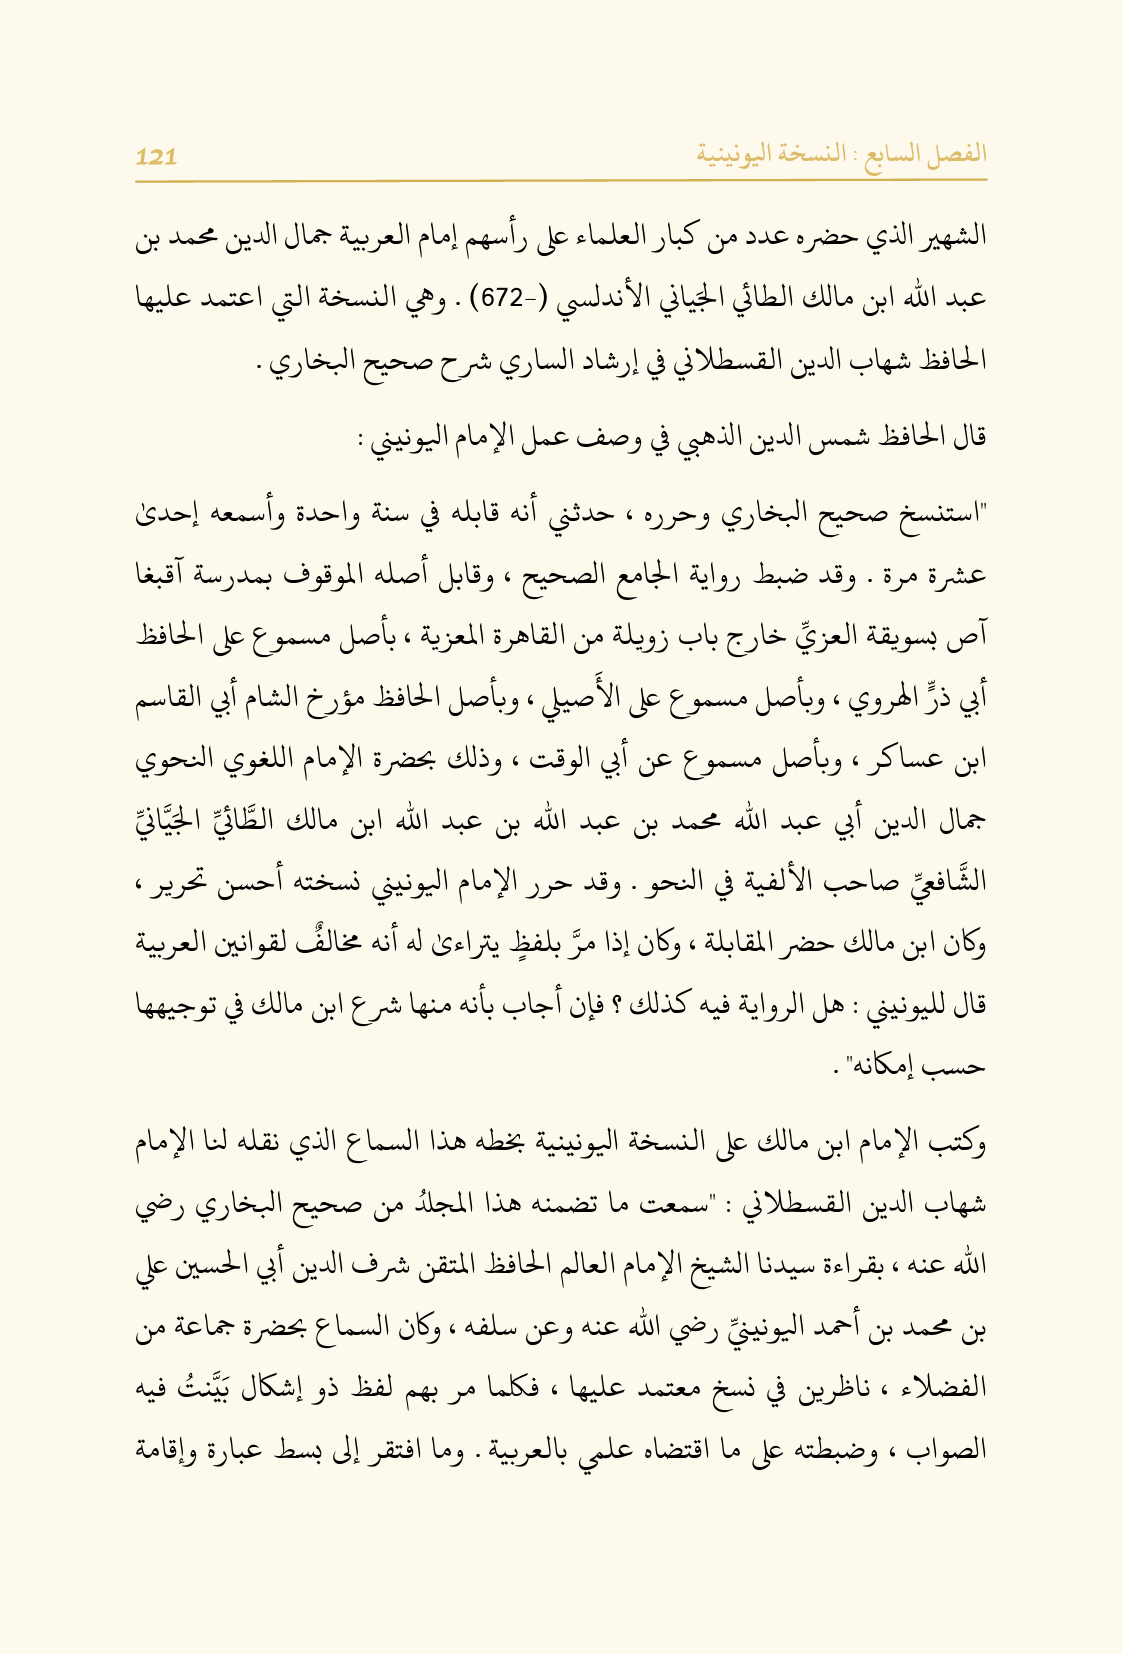 الفصل السابع : النسخة اليونينية 121
الشهير الذي حضره عدد من كبار العلماء على رأسهم إمام العربية جمال الدين محمد بن
عبد الله ابن مالك الطائي الجَياني الأندلسي (-672) . وهي النسخة التي اعتمد عليها
الحافظ شهاب الدين القسطلاني في إرشاد الساري شرح صحيح البخاري .
قال الحافظ شمس الدين الذهبي في وصف عمل الإمام اليونيني :
"استنسخ صحيح البخاري وحرره ، حدثني أنه قابله في سنة واحدة وأسمعه إحدىٰ
عشرة مرة . وقد ضبط رواية الجامع الصحيح ، وقابل أصله الموقوف بمدرسة آقبغا
آص بسويقة العزيِّ خارج باب زويلة من القاهرة المعزية ، بأصل مسموع على الحافظ
أبي ذرٍّ الهروي ، وبأصل مسموع على الأَصيلي ، وبأصل الحافظ مؤرخ الشام أبي القاسم
ابن عساكر ، وبأصل مسموع عن أبي الوقت ، وذلك بحضرة الإمام اللغوي النحوي
جمال الدين أبي عبد الله محمد بن عبد الله بن عبد الله ابن مالك الطَّائيِّ الجَيَّانيِّ
الشَّافعيِّ صاحب الألفية في النحو . وقد حرر الإمام اليونيني نسخته أحسن تحرير ،
وكان ابن مالك حضر المقابلة ، وكان إذا مرَّ بلفظٍ يتراءىٰ له أنه مخالفٌ لقوانين العربية
قال لليونيني : هل الرواية فيه كذلك ؟ فإن أجاب بأنه منها شرع ابن مالك في توجيهها
حسب إمكانه" .
وكتب الإمام ابن مالك على النسخة اليونينية بخطه هذا السماع الذي نقله لنا الإمام
شهاب الدين القسطلاني : "سمعت ما تضمنه هذا المجلدُ من صحيح البخاري رضي
الله عنه ، بقراءة سيدنا الشيخ الإمام العالم الحافظ المتقن شرف الدين أبي الحسين علي
بن محمد بن أحمد اليونينيِّ رضي الله عنه وعن سلفه ، وكان السماع بحضرة جماعة من
الفضلاء ، ناظرين في نسخ معتمد عليها ، فكلما مر بهم لفظ ذو إشكال بَيَّنتُ فيه
الصواب ، وضبطته على ما اقتضاه علمي بالعربية . وما افتقر إلى بسط عبارة وإقامة